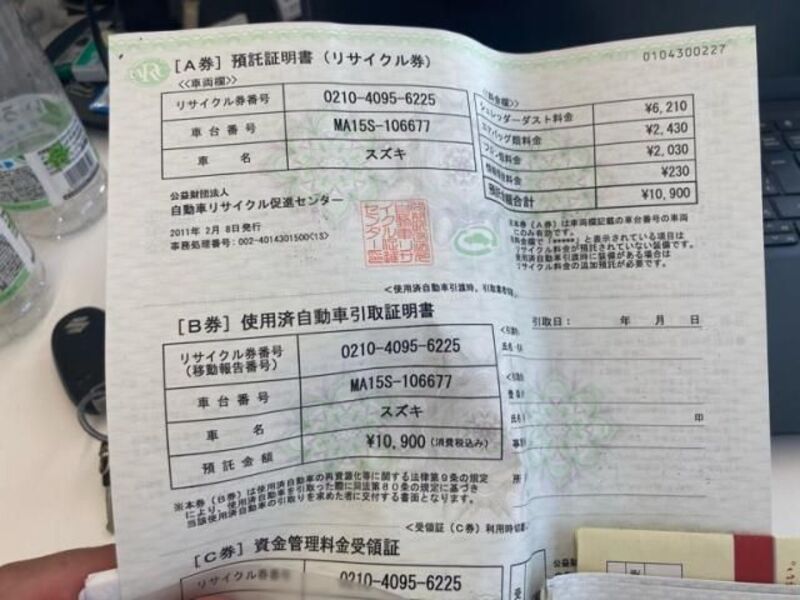 [A券] 預託証明書（リサイクル券）
0104300227
<<車両欄>>
リサイクル券番号 0210-4095-6225
車台番号 MA15S-106677
車名 スズキ
シュレッダーダスト料金 ¥6,210
エアバッグ類料金 ¥2,430
フロン類料金 ¥2,030
¥230
預託金額合計 ¥10,900
公益財団法人
自動車リサイクル促進センター
2011年 2月 8日発行
事務処理番号:002-4014301500<1S>
※本券（A券）は車両欄記載の車台番号の車両
このみ有効です。
料金欄で「*****」と表示されている項目は
リサイクル料金が預託されていない装備です。
使用済自動車引渡時に装備がある場合は
リサイクル料金の追加預託が必要です。
<使用済自動車引渡時、引取業者
[B券] 使用済自動車引取証明書
引取日： 年 月 日
リサイクル券番号
（移動報告番号） 0210-4095-6225
車台番号 MA15S-106677
車名 スズキ
預託金額 ¥10,900（消費税込み）
印
※本券（B券）は使用済自動車の再資源化等に関する法律第9条の規定
により、使用済自動車を引取った際に同法第80条の規定に基づき
当該使用済自動車の引取りを求めた者に交付する書面となります。
<受領証（C券）利用時切
[C券] 資金管理料金受領証
リサイクル券番号 0210-4095-6225
公益財